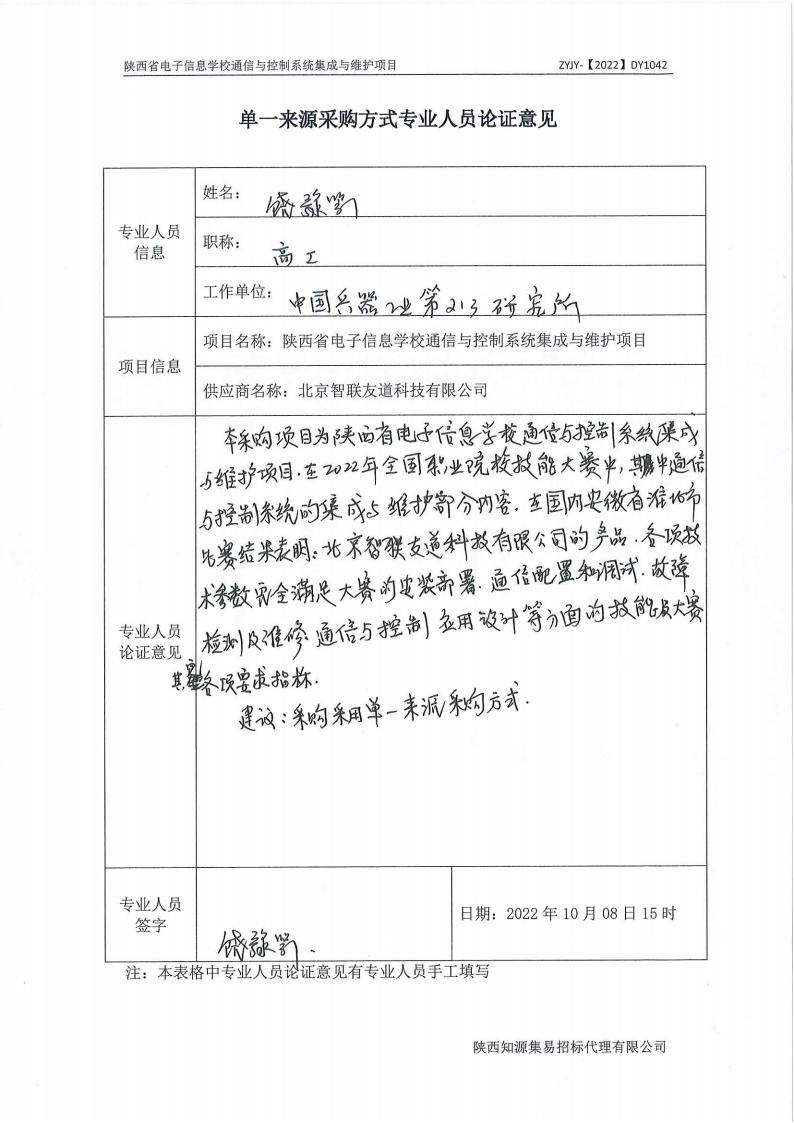 陕西省电子信息学校通信与控制系统集成与维护项目 ZYJY-【2022】DY1042
单一来源采购方式专业人员论证意见
专业人员
信息
姓名：
职称：高工
工作单位：中国兵器工业第213研究所
项目信息
项目名称：陕西省电子信息学校通信与控制系统集成与维护项目
供应商名称：北京智联友道科技有限公司
专业人员
论证意见
本采购项目为陕西省电子信息学校通信与控制系统集成
与维护项目.在2022年全国职业院校技能大赛中,其中通信
与控制系统的集成与维护部分内容.在国内安徽省淮北市
比赛结果表明:北京智联友道科技有限公司的产品.各项技
术参数完全满足大赛的安装部署.通信配置和调试.故障
检测及维修 通信与控制应用设计等方面的技能及大赛
其它各项要求指标.
建议:采购采用单一来源采购方式.
专业人员
签字
日期：2022 年 10 月 08 日 15 时
注：本表格中专业人员论证意见有专业人员手工填写
陕西知源集易招标代理有限公司